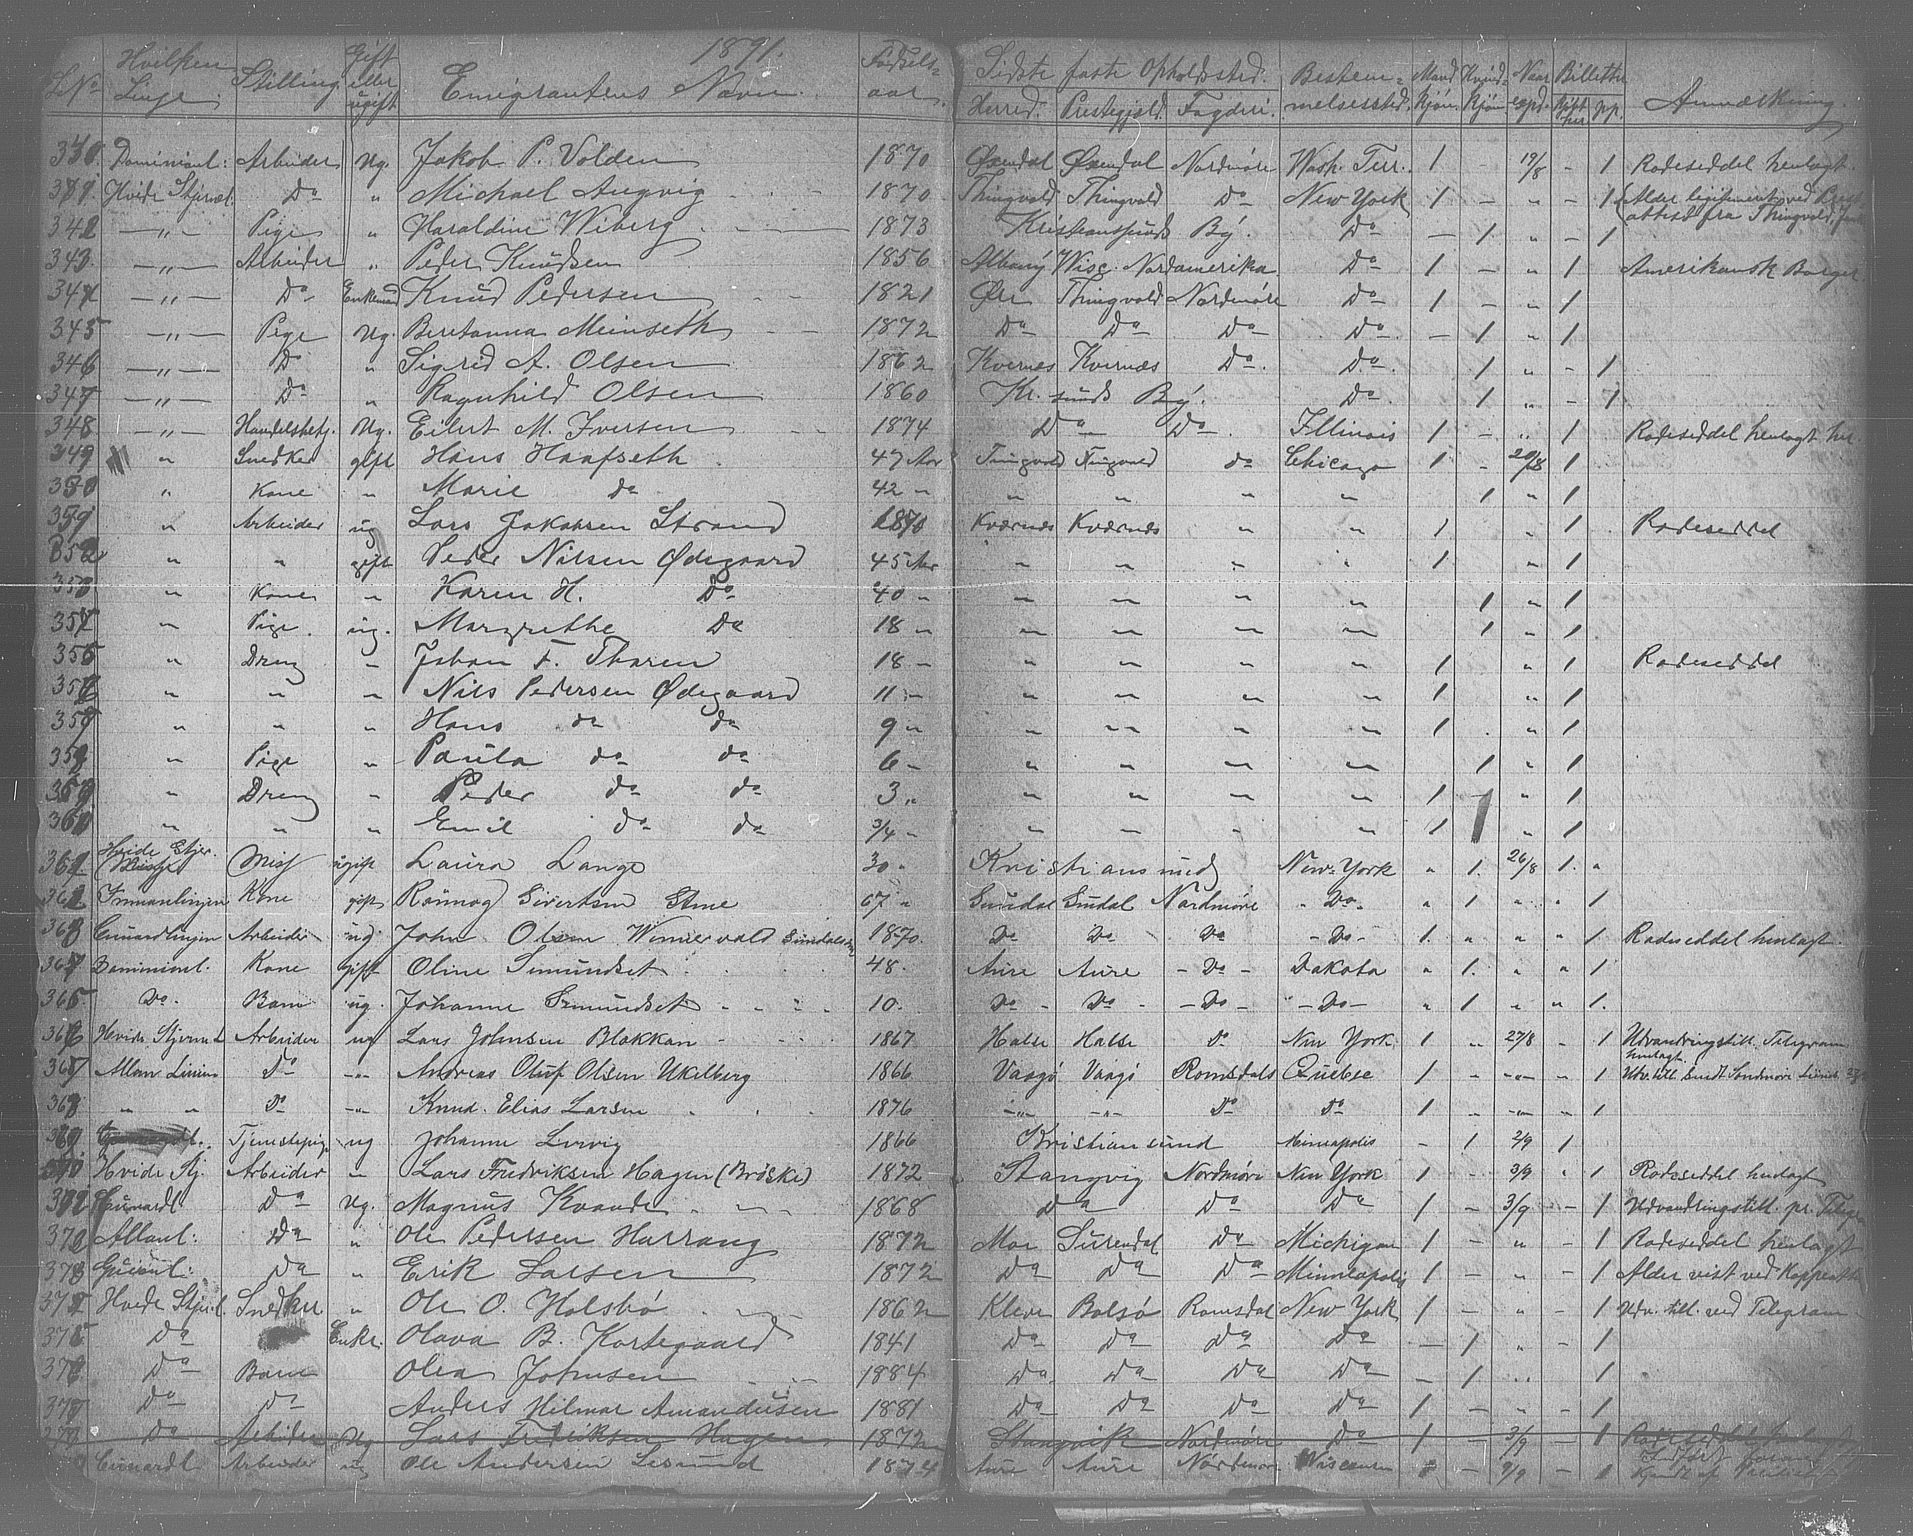 1891.
L.No. Hvilken Linje. Stilling Gift eller ugift Emigrantens Navn. Fødsels-aar. Sidste faste Opholdssted. Herred. Prestegjæld. Fogderi. Bestem-melsessted. Mand kjøn. Kvind-kjøn. Naar exp. Billetter kjøbt her pp. Anmærkning.
340. Dominionl: Arbeider Ug. Jakob P. Volden 1870 Øxendal Øxendal Nordmøre Wash. Terr. 1 - 19/8 - 1 Rodeseddel henlagt.
341. Hvide Stjernel. Do " Michael Angvig 1870 Thingvold Thingvold Do New York 1 - " - 1 Alder legitimeret ved Prest- attest fra Thingvold
342 -"- Pige " Haraldine Wiberg 1873 Kristianssunds By. Do - 1 " - 1
343. -"- Arbeider " Peder Knudsen 1856 Albany Wisc. Nordamerika Do 1 - " 1 Amerikansk Borger.
344 -"- Do Enkemand Knud Pedersen 1821 Øre Thingvold Nordmøre Do 1 - " 1
345 -"- Pige Ug. Beretanna Meinseth 1872 Do Do Do Do - 1 " 1
346 -"- Do " Sigrid A. Olsen 1862 Kvernæs Kvernæs Do. Do. 1 " - 1
347 -"- Do " Ragnhild Olsen 1860 Kr. sunds By. Do. 1 " - 1
348 -"- Handelsbetj. Ug. Eilert M. Iversen 1874 Do Do. Illinois 1 - " 1 Rodeseddel henlagt her.
349 " Snedker gift Hans Haafseth 47 Aar Tingvold Tingvold do Chicago 1 - 20/8 1
350 " Kone " Marie do 42 " " " " " 1 " 1
351 " Arbeider ug Lars Jakobsen Strand 1870 Kværnæs Kværnæs " " 1 " 1 Rodeseddel
352 " " gift Peder Nilsen Ødegaard 45 Aar " " " " 1 " 1
353 " Kone " Karen H. Do 40 " " " " " 1 " 1
354 " Pige ug. Margrethe Do 18 " " " " " 1 " 1
355 " Dreng " Johan F. Tharen 18 " " " " " 1 " 1 Rodeseddel
356 " " " Nils Pedersen Ødegaard 11 " " " " " 1 " 1
357 " " " Hans do do 9 " " " " " 1 " 1
358 " Pige " Paula do do 6 " " " " " 1 " 1
359 " Dreng " Peder do do 3 " " " " " 1 - " 1
360 " " " Emil do do 3/4 " " " " " 1 " 1
361 Hvide Stjer. Miss ugift Laura Lange 30 " Kristiansund New-York " 1. 26/8 1. "
362 Inmanlinjen Kone gift Rønnog Sivertsen 67 " Sundal Sundal Nordmøre " Do " " 1 " " 1
363 Cunardlinjen Arbeider ug. John Olsen Sundalsøren 1870. Do Do Do - Do - 1. " " " 1 Rodeseddel henlagt.
364 Dominionl. Kone gift Oline Smundset 48. Aure Aure - Do - Dakota " 1. " " 1
365. Do. Barn ug. Johanne Smundset 10. Do Do - Do - - Do - " 1 " " 1.
366 Hvide Stjernel Arbeider ug Lars Johnsen Blokkan 1867 Halse Halse Do New York 1 " 27/8 - 1 Udvandringstill. Telegram henlagt.
367 Allan Linien Do -"- Andreas Oluf Olsen Ukelberg 1866 Vaagø Vaagø Romsdals Quebec 1 - -"- - 1
368 " " Do -"- Knud Elias Larsen 1876 -"- -"- Do Do 1 - -"- - 1
369 Tjenestepige ug Johanne Lervig 1866 Kristiansund Mineapolis - 1 2/9 1
370 Hvide Stj. Arbeider " Lars Fredriksen Hagen (Brøske) 1872 Stangvig Nordmøre New York 1 - 3/9 - 1 Rodeseddel henlagt
371 Cunardl Do Ug. Magnus Kvande 1868 Do Do Do 1 - 3/9 - 1 Udvandringstill. pr. Telegr
372 Allanl: Do " Ole Pedersen Harrang 1872 Mo Surendal Do Michigan 1 - " - 1 Rodeseddel henlagt
373 Guionl: Do " Erik Larsen 1872 Do Do Do Minneapolis 1 - " - 1 Alder vist ved Koppeatt
374 Hvide Stjernl. Snedker " Ole O. Holsbø 1862 Kleve Bolsø Romsdal New York 1 - " - 1 Udv. till. ved Telegram
375 Do Enke. Olava B. Kortegaard 1841 Do Do Do Do - 1 " - 1
376 Do Barn Olea Johnsen 1884 Do Do Do Do - 1 " 1
377 Do Do Anders Hilmar Amandusen 1881 Do Do Do Do 1 - " - 1
378 Do Arbeider Ug Lars Fredriksen Hagen 1872 Stangvik Nordmøre Do 1 - 3/9 - 1 Rodeseddel henlagt
Cunardl Arbeider ug Ole Andersen Lesund 1874 Aure Aure Nordmør Wisconsin 1 - 9/9 - 1